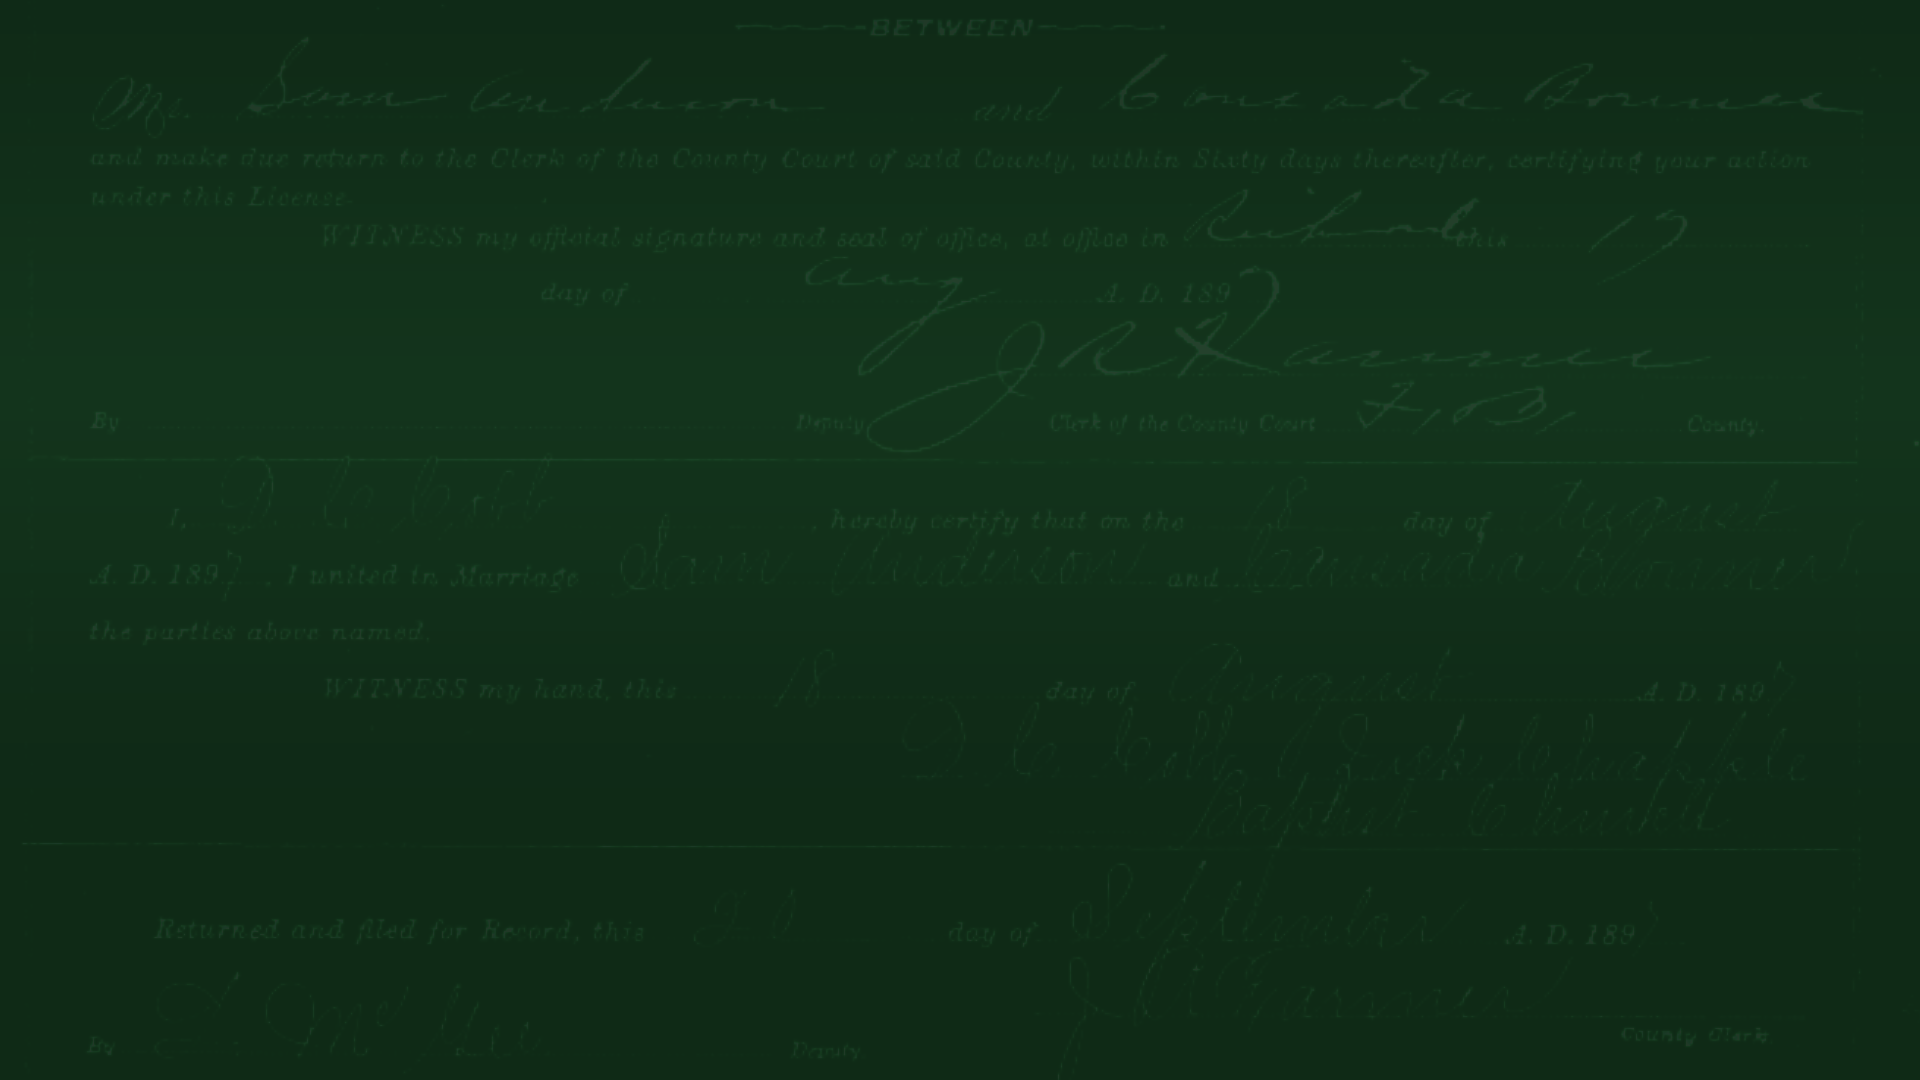 BETWEEN
Mr. Sam Anderson and Consada Bonner
and make due return to the Clerk of the County Court of said County, within Sixty days thereafter, certifying your action
under this License.
WITNESS my official signature and seal of office, at office in Richmond this 17
day of Aug A. D. 1897
J R Farmer
By Deputy Clerk of the County Court F. B. County.
I, D. C. Cobb, hereby certify that on the 18 day of August
A. D. 1897, I united in Marriage Sam Andinson and Bonner
the parties above named.
WITNESS my hand, this 18 day of August A. D. 1897
D C Cobb
Baptist Church
Returned and filed for Record, this 20 day of September A. D. 1897
By Deputy County Clerk